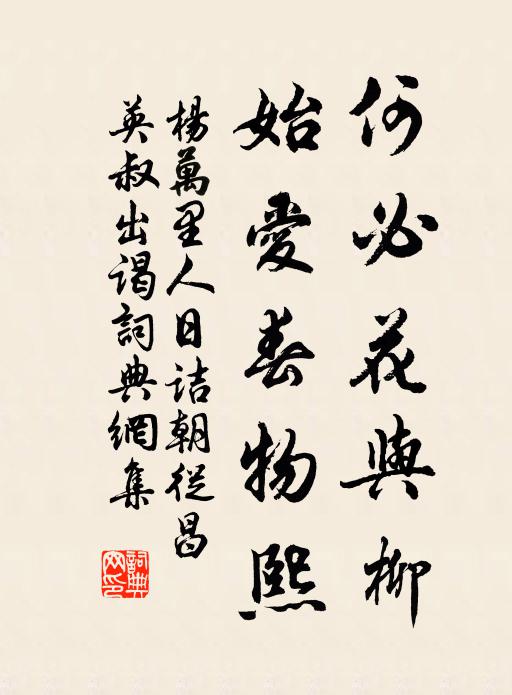 何必花與柳
始愛春物熙
楊萬里人日詰朝從昌
英叔出謁詞典網集
詞典
網印